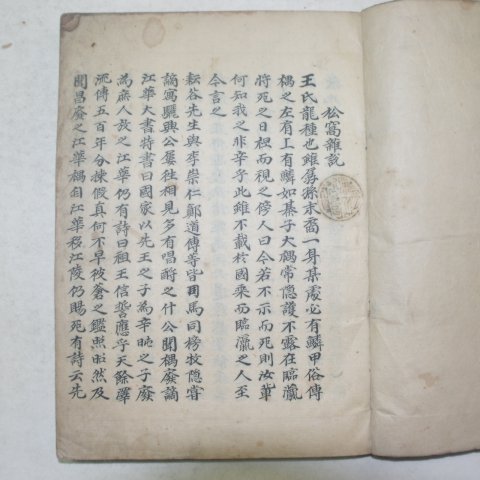 松窩雜說
王氏龍種也雖孱孫末裔一身某處必有鱗甲俗傳
禑之左右工有鱗如棊子大禑常隱護不露在臨瀛
將死之日袒而視之傍人曰今若不示而死則汝輩
何知我之非辛乎此雖不載於國乘而臨瀛之人至
今言之
耘谷先生與李崇仁鄭道傳等皆司馬同榜牧隱嘗
謫寓驪興公屢往相見多有唱酬之什公聞禑廢謫
江華大書特書曰國家以先王之子為辛旽之子廢
為庶人放之江華仍有詩曰祖王信誓應乎天餘澤
流傳五百年分揀假真何不早彼蒼之鑑照昭然及
聞昌廢之江華禑自江華移江陵仍賜死有詩云先